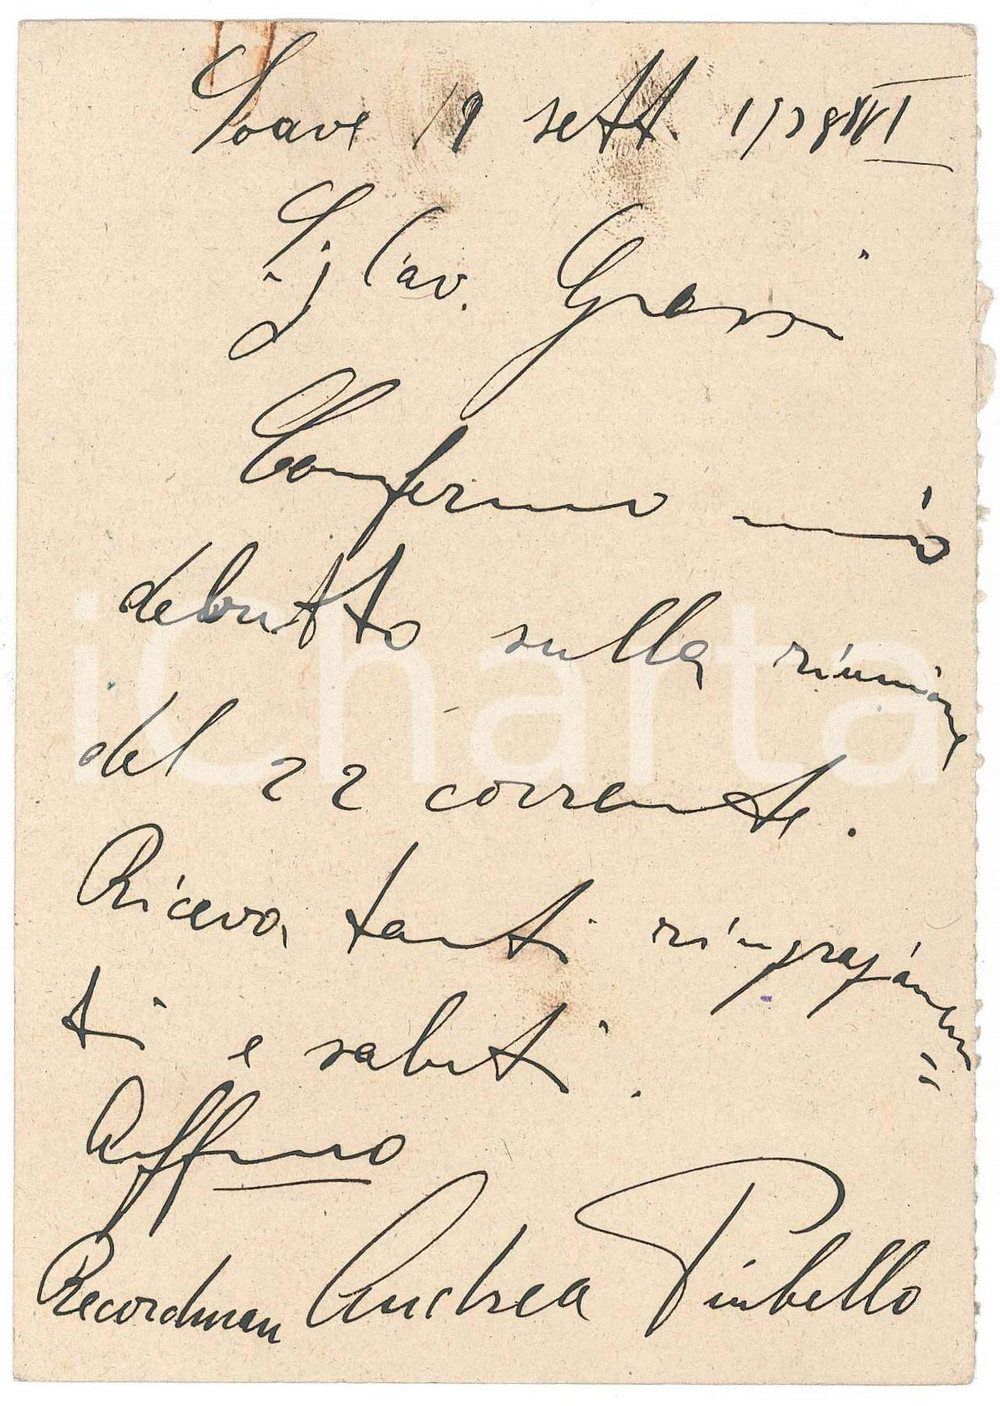 Soave 19 sett. 1938 XVI
Sig Cav. Grassi
Confermo mio
debutto sulla riunione
del 22 corrente.
Riceva, tanti ringraziamen=
ti e saluti.
Affmo
Recordman Andrea Pinbello
iCharta